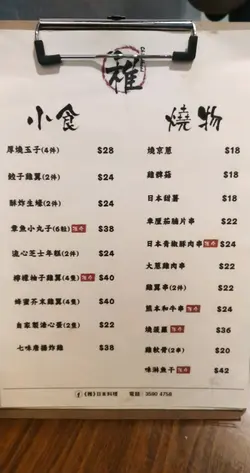 稚
小食
厚燒玉子(4件) $28
餃子雞翼(2件) $24
酥炸生蠔(2件) $24
章魚小丸子(6粒) 推介 $38
流心芝士年糕(2件) $24
檸檬柚子雞翼(4隻) 推介 $40
蜂蜜芥末雞翼(4隻) $40
自家製溏心蛋(2隻) $22
七味唐揚炸雞 $38
燒物
燒京蔥 $18
雞髀菇 $18
日本甜薯 $18
車厘茄腩片串 $22
日本青椒豚肉串 推介 $24
大蔥雞肉串 $22
雞翼串(2件) $22
熊本和牛串 推介 $24
燒菠蘿 推介 $36
雞軟骨(2串) $20
味淋魚干 推介 $42
《稚》日本料理 電話: 3580 4758